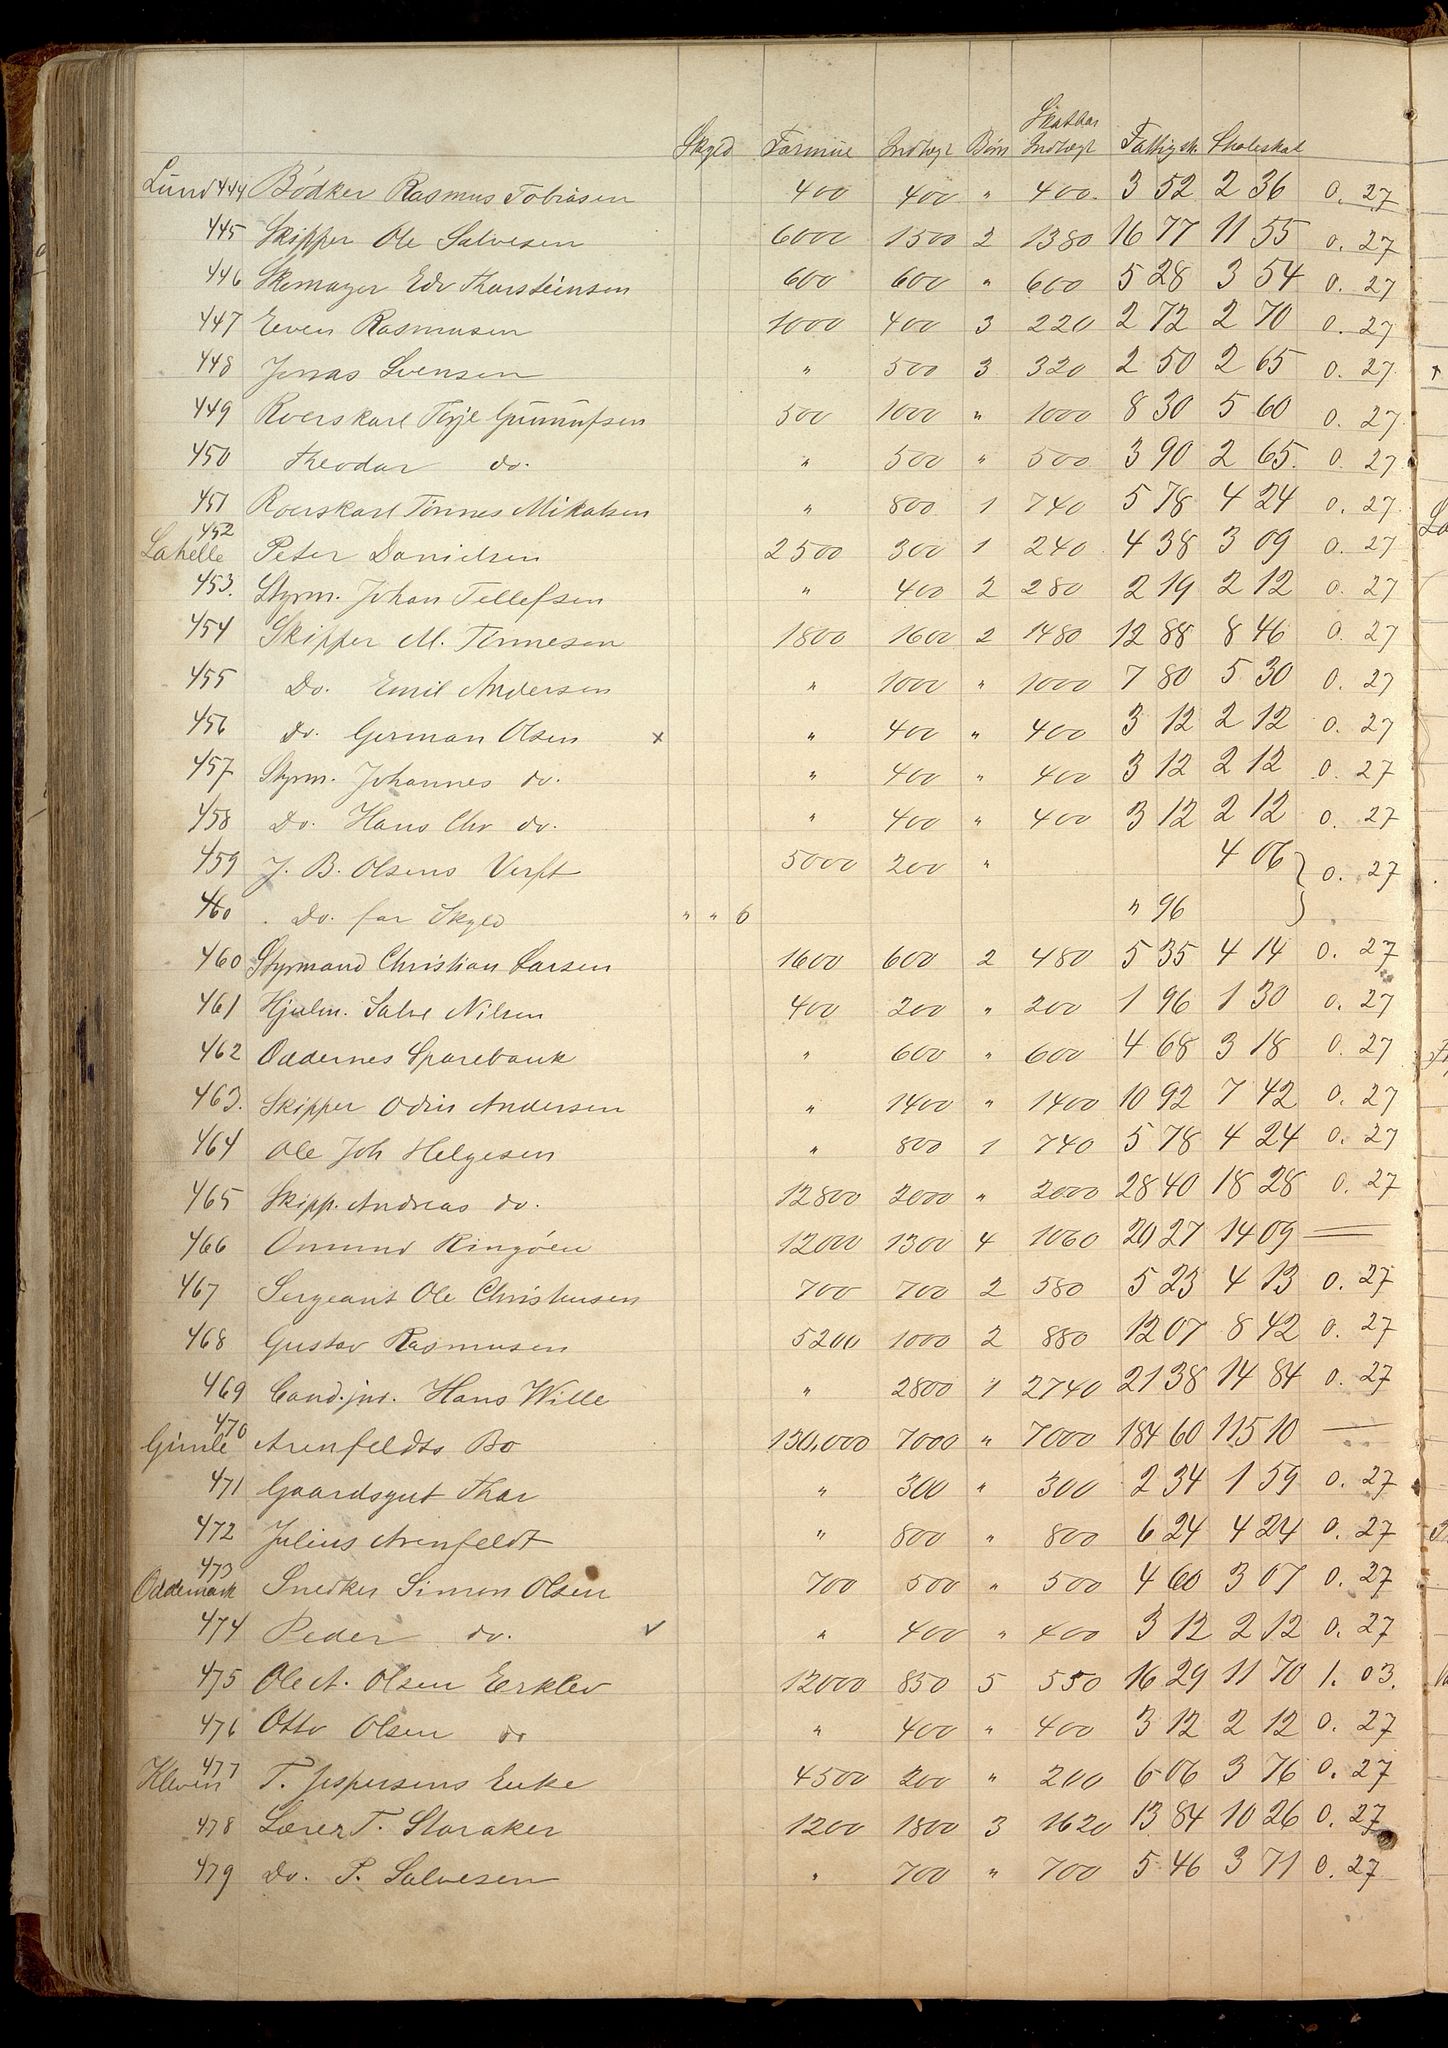 Skyld Formue Indtægt Børn Skatbar Indtægt Fattigsk. Skoleskat
Lund 444 Bödker Rasmus Tobiasen 400 400 " 400. 3 52 2 36 0. 27
445 Skipper Ole Salvesen 6000 1500 2 1380 16 77 11 55 0. 27
446 Skomager Edv Thorsteinsen 600 600 " 600 5 28 3 54 0. 27
447 Even Rasmusen 1000 400 3 220 2 72 2 70 0. 27
448 Jonas Svensen " 500 3 320 2 50 2 65 0. 27
449 Roerskarl Terje Gunnufsen 500 1000 " 1000 8 30 5 60 0. 27
450 Theodor do. " 500 " 500 3 90 2 65. 0. 27
451 Roerskarl Tönnes Mikalsen " 800 1 740 5 78 4 24 0. 27
452 Lahelle Peter Danielsen 2500 300 1 240 4 38 3 09 0. 27
453. Styrm. Johan Tellefsen " 400 2 280 2 19 2 12 0. 27
454 Skipper M. Tönnesen 1800 1600 2 1480 12 88 8 46 0. 27
455 Do. Emil Andersen " 1000 " 1000 7 80 5 30 0. 27
456 Do. German Olsen x " 400 " 400 3 12 2 12 0. 27
457 Styrm. Johannes do. " 400 " 400 3 12 2 12 0. 27
458 Do. Hans Chr do. " 400 " 400 3 12 2 12 0. 27
459 J. B. Olsens Verft 5000 200 " 4 06 } 0. 27
460 Do. for Skyld " " 6 " 96
460 Styrmand Christian Larsen 1600 600 2 480 5 35 4 14 0. 27
461 Hjulm. Salve Nilsen 400 200 " 200 1 96 1 30 0. 27
462 Oddernes Sparebank " 600 " 600 4 68 3 18 0. 27
463. Skipper Odin Andersen " 1400 " 1400 10 92 7 42 0. 27
464 Ole Joh Helgesen " 800 1 740 5 78 4 24 0. 27
465 Skipp. Andreas do. 12800 2000 " 2000 28 40 18 28 0. 27
466 Omund Ringöen 12000 1300 4 1060 20 27 14 09 —
467 Sergeant Ole Christensen 700 700 2 580 5 23 4 13 0. 27
468 Gustav Rasmusen 5200 1000 2 880 12 07 8 42 0. 27
469 Cand. jur. Hans Wille " 2800 1 2740 21 38 14 84 0. 27
470 Gimle Arenfeldts Bo 130,000 7000 " 7000 184 60 115 10 —
471 Gaardsgut Thor " 300 " 300 2 34 1 59 0. 27
472 Julius Arenfeldt " 800 " 800 6 24 4 24 0. 27
473 Oddemark Snedker Simon Olsen 700 500 " 500 4 60 3 07 0. 27
474 Peder do. ✓ " 400 " 400 3 12 2 12 0. 27
475 Ole A. Olsen Erklev 12000 850 5 550 16 29 11 70 1. 03.
476 Otto Olsen do " 400 " 400 3 12 2 12 0. 27
477 Kleven T. Jespersens Enke 4500 200 " 200 6 06 3 76 0. 27
478 Lærer T. Storaker 1200 1800 3 1620 13 84 10 26 0. 27
479 Do. P. Salvesen " 700 " 700 5 46 3 71 0. 27